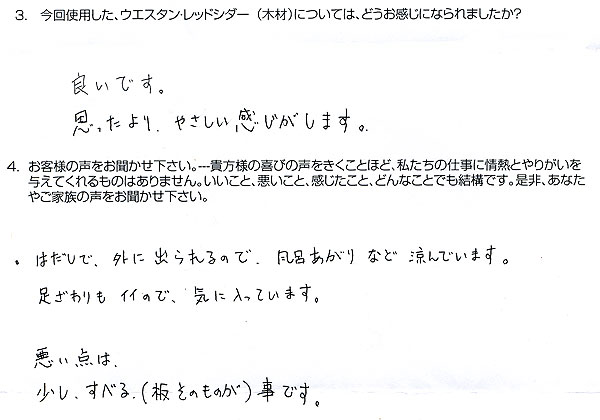 3. 今回使用した、ウエスタン・レッドシダー（木材）については、どうお感じになられましたか？
良いです。
思ったより、やさしい感じがします。
4. お客様の声をお聞かせ下さい。---貴方様の喜びの声をきくことほど、私たちの仕事に情熱とやりがいを
与えてくれるものはありません。いいこと、悪いこと、感じたこと、どんなことでも結構です。是非、あなた
やご家族の声をお聞かせ下さい。
・はだしで、外に出られるので、風呂あがりなど涼んでいます。
足ざわりもイイので、気に入っています。
悪い点は、
少し、すべる、（板そのものが）事です。